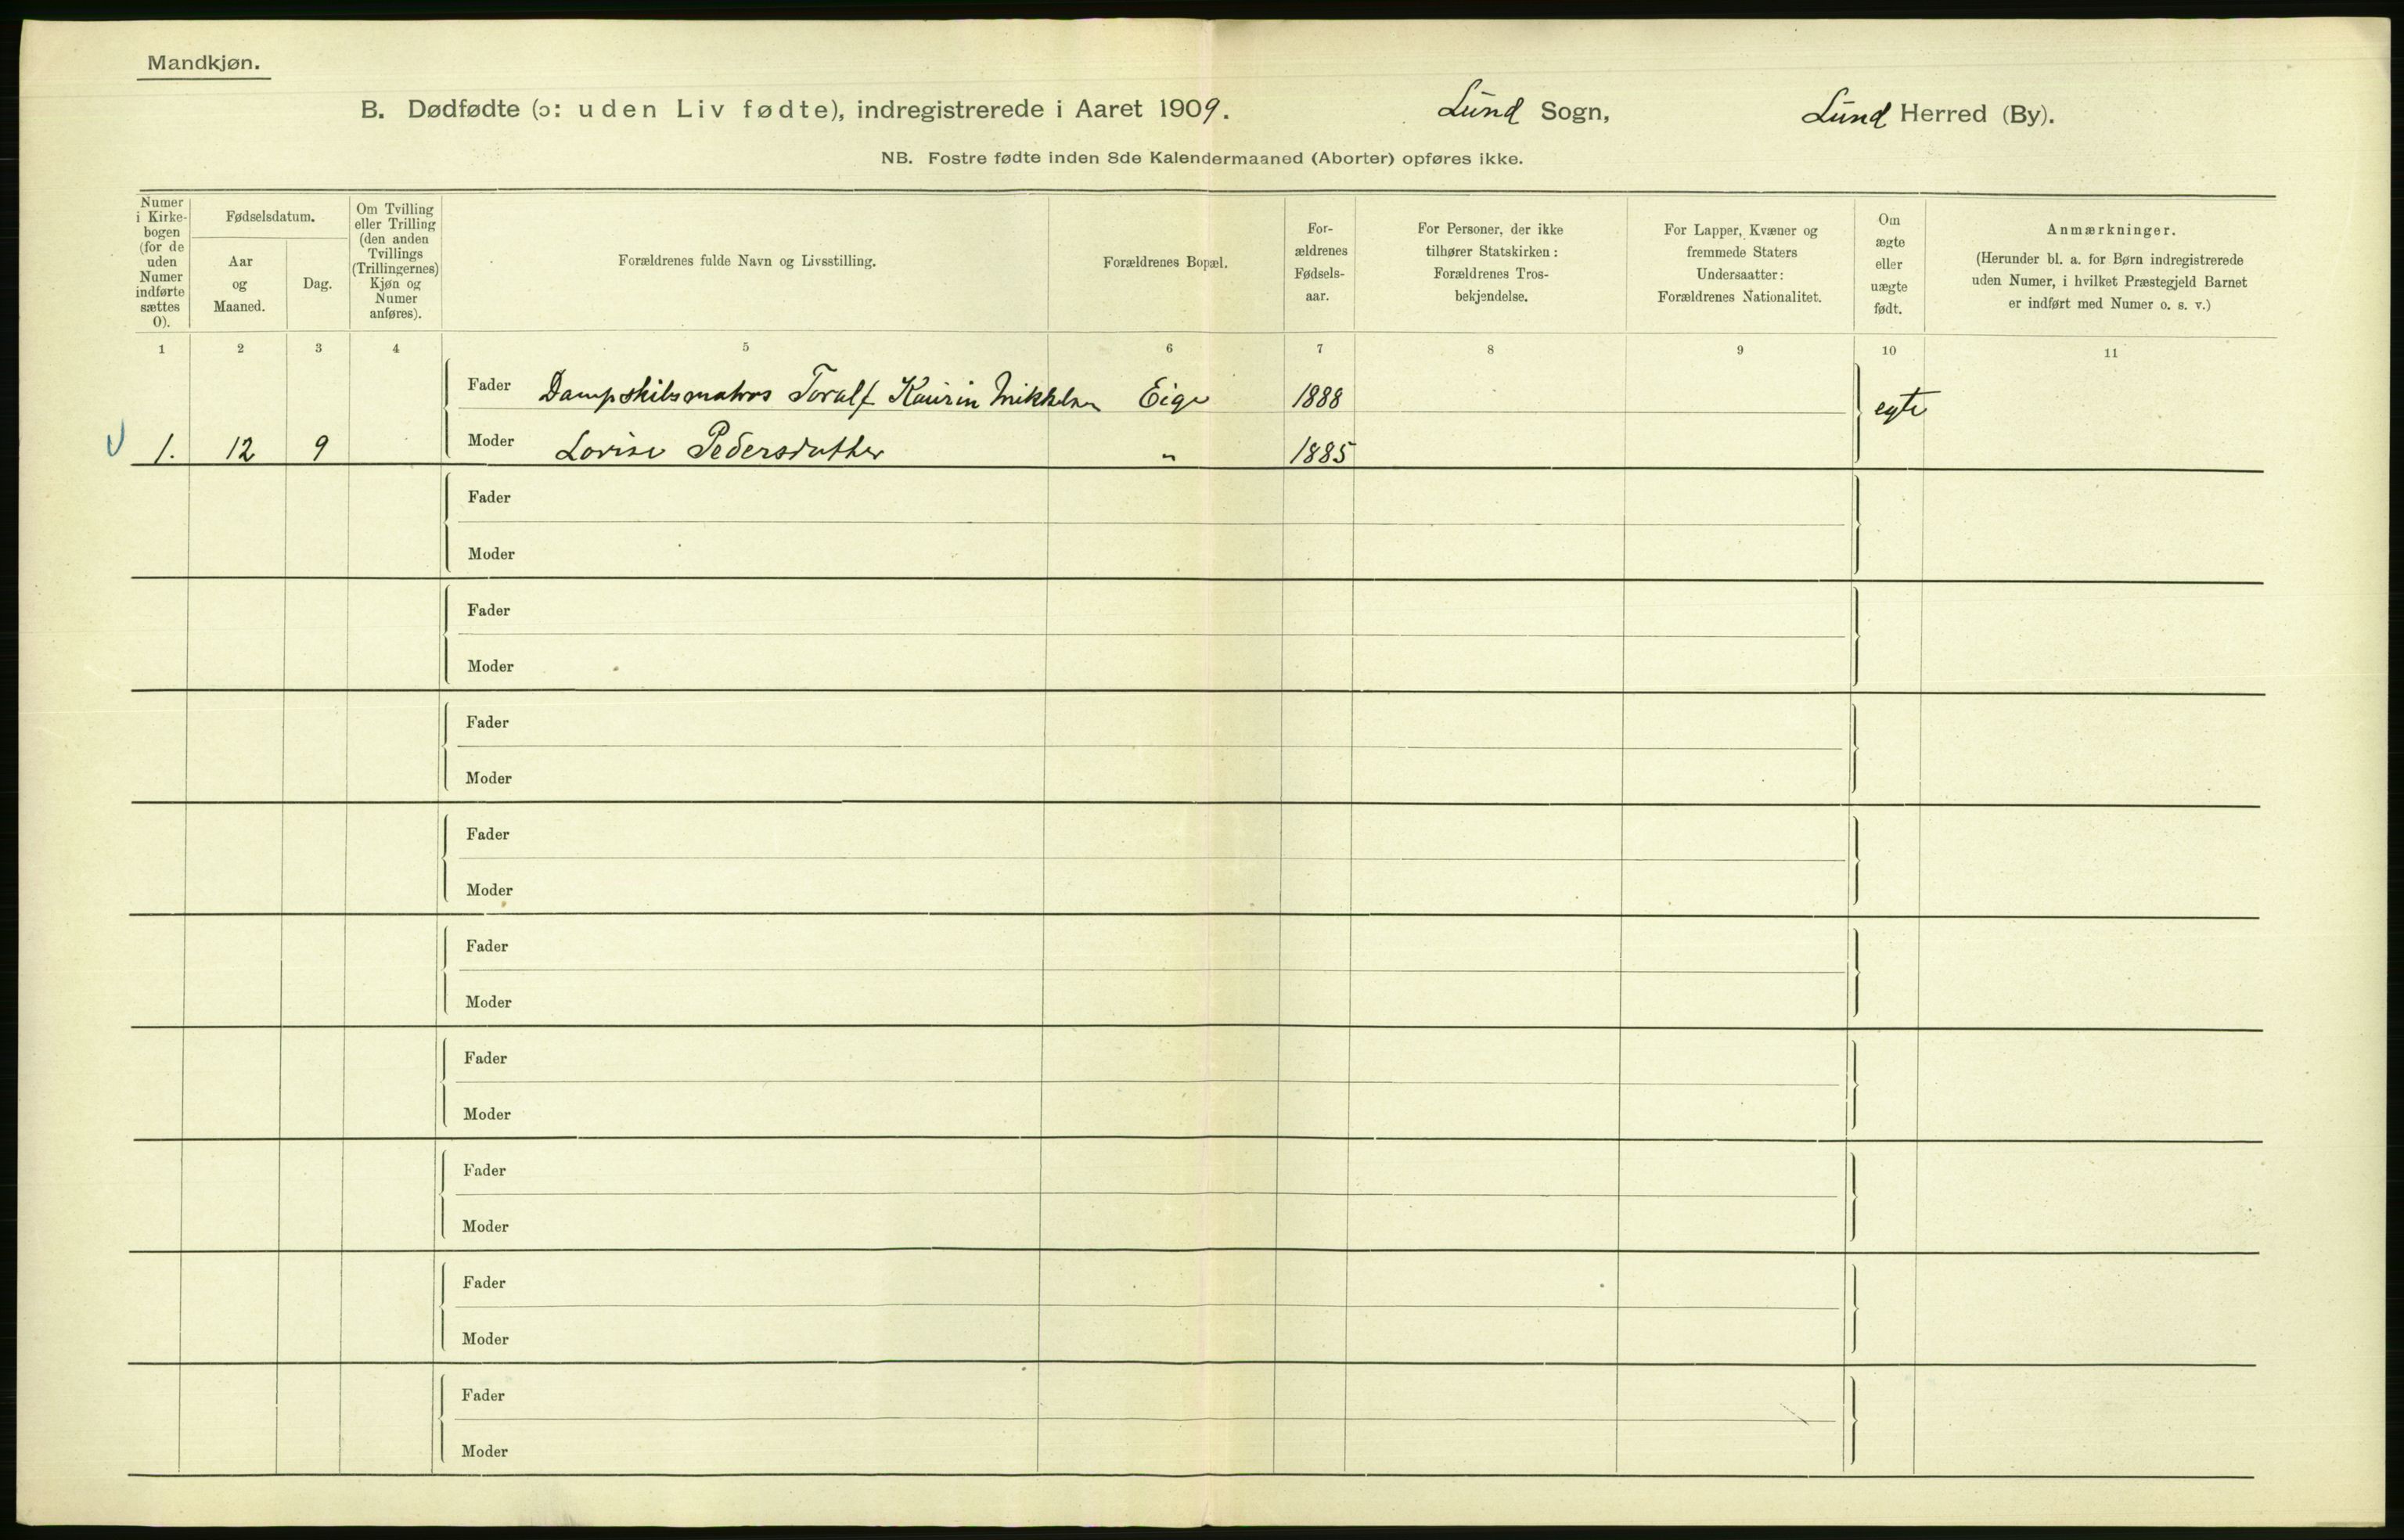 Mandkjøn.
B. Dødfødte (ɔ: uden Liv fødte), indregistrerede i Aaret 1909. Lund Sogn, Lund Herred (By).
NB. Fostre fødte inden 8de Kalendermaaned (Aborter) opføres ikke.
Numer
i Kirke-
bogen
(for de
uden
Numer
indførte
sættes
0).
Fødselsdatum.
Aar
og
Maaned.
Dag.
Om Tvilling
eller Trilling
(den anden
Tvillings
(Trillingernes)
Kjøn og
Numer
anføres).
Forældrenes fulde Navn og Livsstilling.
Forældrenes Bopæl.
For-
ældrenes
Fødsels-
aar.
For Personer, der ikke
tilhører Statskirken:
Forældrenes Tros-
bekjendelse.
For Lapper, Kvæner og
fremmede Staters
Undersaatter:
Forældrenes Nationalitet.
Om
ægte
eller
uægte
født.
Anmærkninger.
(Herunder bl. a. for Børn indregistrerede
uden Numer, i hvilket Præstegjeld Barnet
er indført med Numer o. s. v.)
1 2 3 4 5 6 7 8 9 10 11
Fader Dampskibsmatros Toralf Kaurin Mikkelsen Eige 1888 egte
1. 12 9 Moder Lovise Pedersdatter " 1885
Fader
Moder
Fader
Moder
Fader
Moder
Fader
Moder
Fader
Moder
Fader
Moder
Fader
Moder
Fader
Moder
Fader
Moder